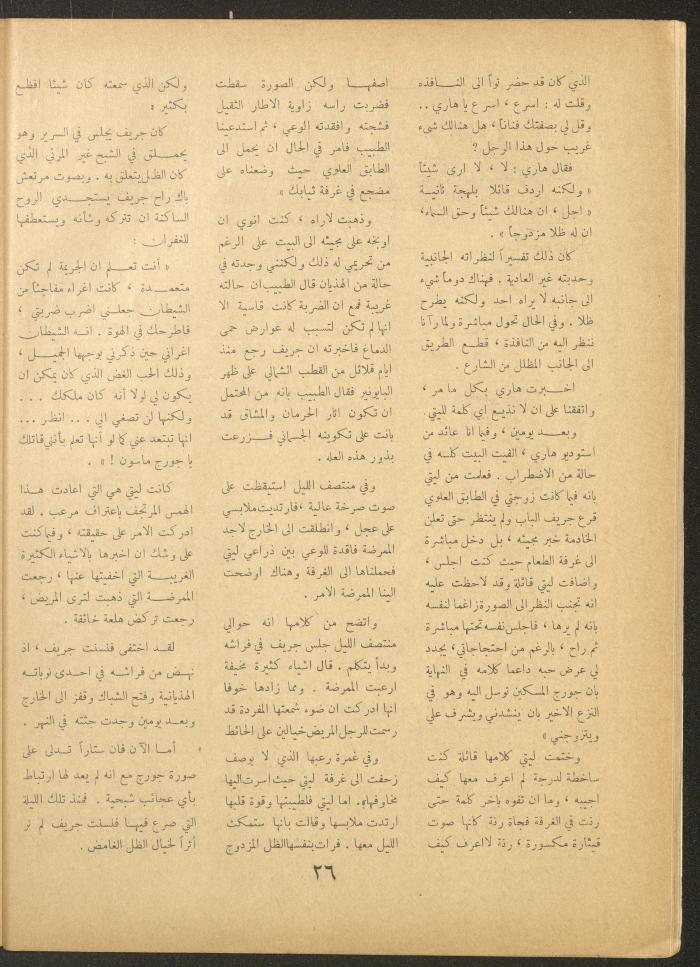 الذي كان قد حضر تواً الى النافذه
وقلت له : اسرع ، اسرع يا هاري ..
وقل لي بصفتك فناناً ، هل هنالك شيء
غريب حول هذا الرجل ؟
فقال هاري : لا ، لا ارى شيئاً
« ولكنه اردف قائلا بلهجة ثانية
« اجل ، ان هنالك شيئاً وحق السماء،
ان له ظلا مزدوجاً » .
كان ذلك تفسيراً لنظراته الجانبية
وحديثه غير العادية . فهناك دوماً شيء
الى جانبه لا يراه احد ولكنه يطرح
ظلا . وفي الحال تحول مباشرة ولما رآنا
ننظر اليه من النافذة ، قطع الطريق
الى الجانب المظلل من الشارع .
اخبرت هاري بكل ما مر ،
واتفقنا على ان لا نذيع اي كلمة لليتي
وبعد يومين ، وفيما انا عائد من
استوديو هاري ، الفيت البيت كله في
حالة من الاضطراب . فعلمت من ليتي
بانه فيما كانت زوجتي في الطابق العلوي
قرع جريف الباب ولم ينتظر حتى تعلن
الخادمة خبر مجيئه ، بل دخل مباشرة
الى غرفة الطعام حيث كنت اجلس ،
واضافت ليتي قائلة وقد لاحظت عليه
انه تجنب النظر الى الصورة زاعما لنفسه
بانه لم يرها ، فاجلس نفسه تحتها مباشرة
ثم راح ، بالرغم من احتجاجاتي ، يجدد
لي عرض حبه داعما كلامه في النهاية
بان جورج المسكين توسل اليه وهو في
النزع الاخير بان ينشدني ويشرف علي
ويتزوجني »
وختمت ليتي كلامها قائلة كنت
ساخطة لدرجة لم اعرف معها كيف
اجيبه ، وما ان تفوه باخر كلمة حتى
رنت في الغرفة فجاة رنة كانها صوت
قيثارة مكسورة ، رنة لا اعرف كيف
اصفها ولكن الصورة سقطت
فضربت راسه زاوية الاطار الثقيل
فشجته وافقدته الوعي ، ثم استدعينا
الطبيب فامر في الحال ان يحمل الى
الطابق العلوي حيث وضعناه على
مضجع في غرفة ثيابك »
وذهبت لاراه ، كنت انوي ان
اوبخه على مجيئه الى البيت على الرغم
من تحريمي له ذلك ولكنني وجدته في
حالة من الهذيان قال الطبيب ان حالته
غريبة فمع ان الضربة كانت قاسية الا
انها لم تكن لتسبب له عوارض حمى
الدماغ فاخبرته ان جريف رجع منذ
ايام قلائل من القطب الشمالي على ظهر
البايونير فقال الطبيب بانه من المحتمل
ان تكون اثار الحرمان والمشاق قد
بانت على تكوينه الجسماني فزرعت
بذور هذه العله .
وفي منتصف الليل استيقظت على
صوت صرخة عالية ، فارتديت ملابسي
على عجل ، وانطلقت الى الخارج لاجد
الممرضة فاقدة للوعي بين ذراعي ليتي
فحملناها الى الغرفة وهناك اوضحت
الينا الممرضة الامر .
واتضح من كلامها انه حوالي
منتصف الليل جلس جريف في فراشه
وبدأ يتكلم . قال اشياء كثيرة مخيفة
ارعبت الممرضة . ومما زادها خوفا
انها ادركت ان ضوء شمعتها المفردة قد
رسمت للرجل المريض خيالين على الحائط
وفي غمرة رعبها الذي لا يوصف
زحفت الى غرفة ليتي حيث اسرت اليها
مخاوفها. اما ليتي فلطيبتها وقوة قلبها
ارتدت ملابسها وقالت بانها ستمكث
الليل معها . فرات بنفسها الظل المزدوج
ولكن الذي سمعته كان شيئا افظع
بكثير :
كان جريف يجلس في السرير وهو
يحملق في الشبح غير المرئي الذي
كان الظل يتعلق به . وبصوت مرتعش
باك راح جريف يستجدي الروح
الساكنة ان تتركه وشأنه ويستعطفها
للغفران :
« أنت تعلم ان الجريمة لم تكن
متعمدة ، كانت اغراء مفاجئاً من
الشيطان جعلني اضرب ضربتي ،
فاطرحك في الهوة . انه الشيطان
اغراني حين ذكرني بوجهها الجميل ،
وذلك الحب الغض الذي كان يمكن ان
يكون لي لولا أنه كان ملكك ...
ولكنها لن تصغي الي ... انظر ...
انها تبتعد عني كما لو أنها تعلم بأنني قاتلك
يا جورج ماسون ! » .
كانت ليتي هي التي اعادت هذا
الهمس المرتجف باعتراف مرعب . لقد
ادركت الامر على حقيقته ، وفيما كنت
على وشك ان اخبرها بالاشياء الكثيرة
الغريبة التي اخفيتها عنها ، رجعت
الممرضة التي ذهبت لترى المريض ،
رجعت تركض هلعة خائفة .
لقد اختفى فنسنت جريف ، اذ
نهض من فراشه في احدى نوباته
الهذيانية وفتح الشباك وقفز الى الخارج
وبعد يومين وجدت جثته في النهر .
أما الآن فان ستاراً تدلى على
صورة جورج مع انه لم يعد لها ارتباط
بأي عجائب شبحية . فمنذ تلك الليلة
التي صرع فيها فنسنت جريف لم نر
أثراً لخيال الظل الغامض .
٢٦